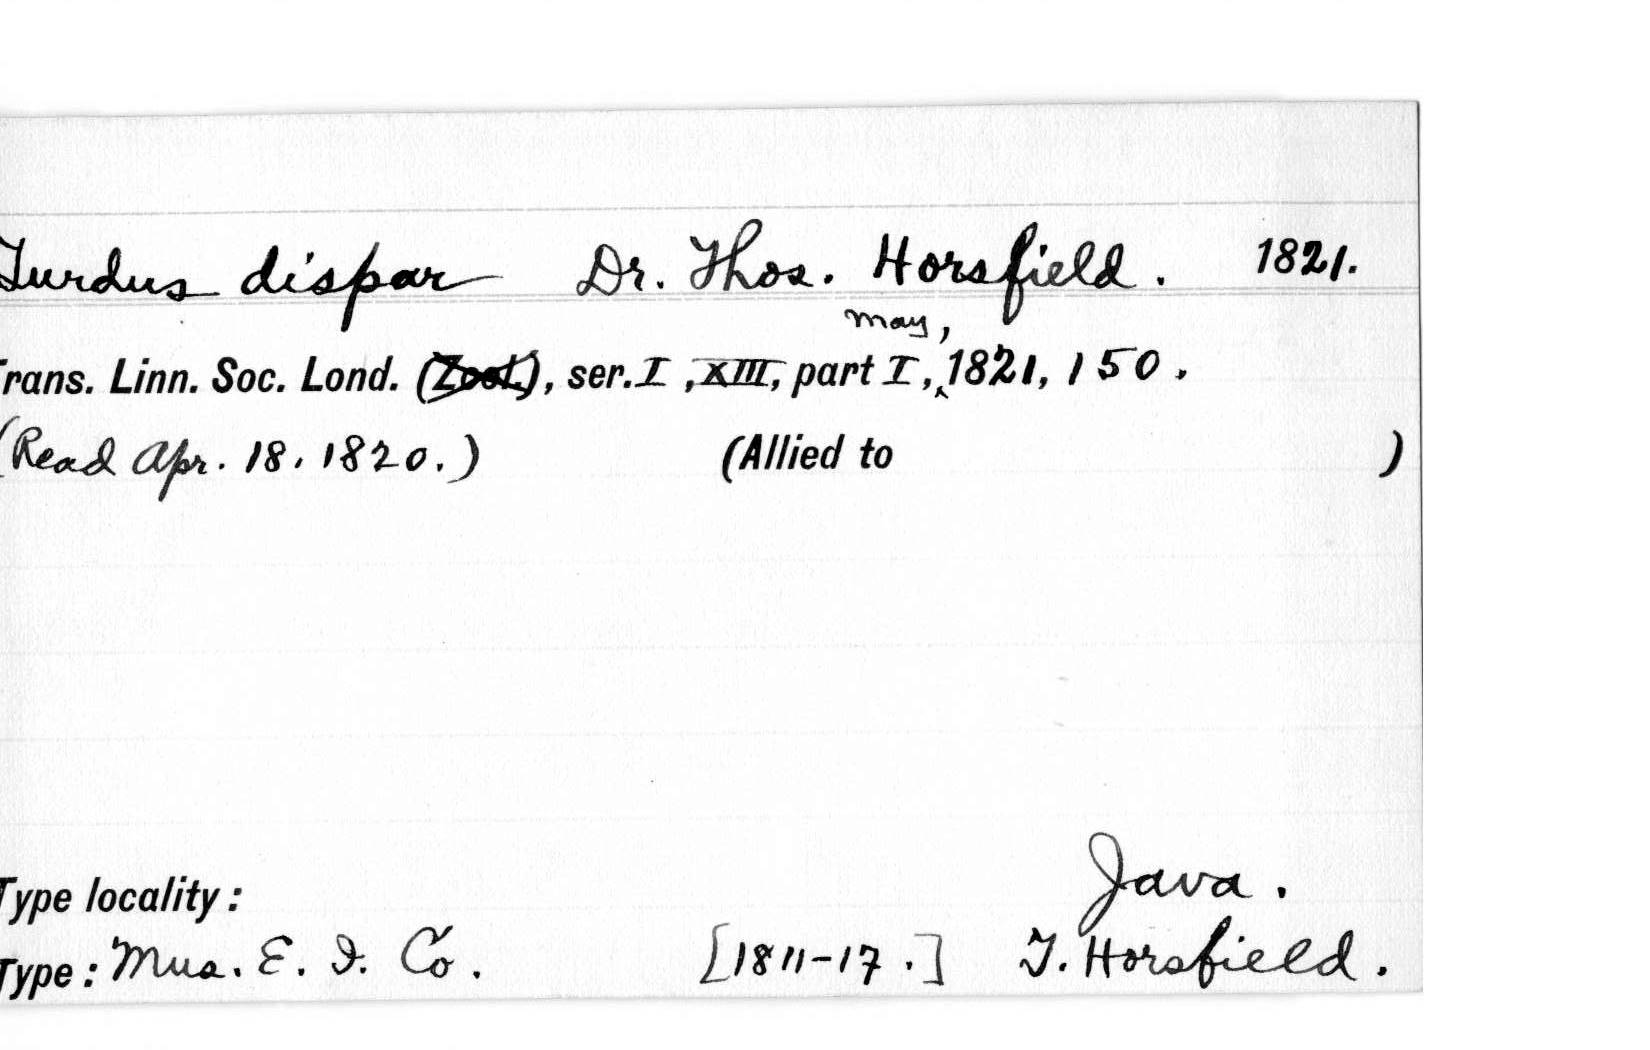 Turdus dispar Dr. Thos. Horsfield. 1821.
Trans. Linn. Soc. Lond. (Zool.), ser. I, XIII, part I, May, 1821, 150.
(Read Apr. 18, 1820.) (Allied to )
Type locality: Java.
Type: Mus. E. I. Co. [1811-17.] T. Horsfield.